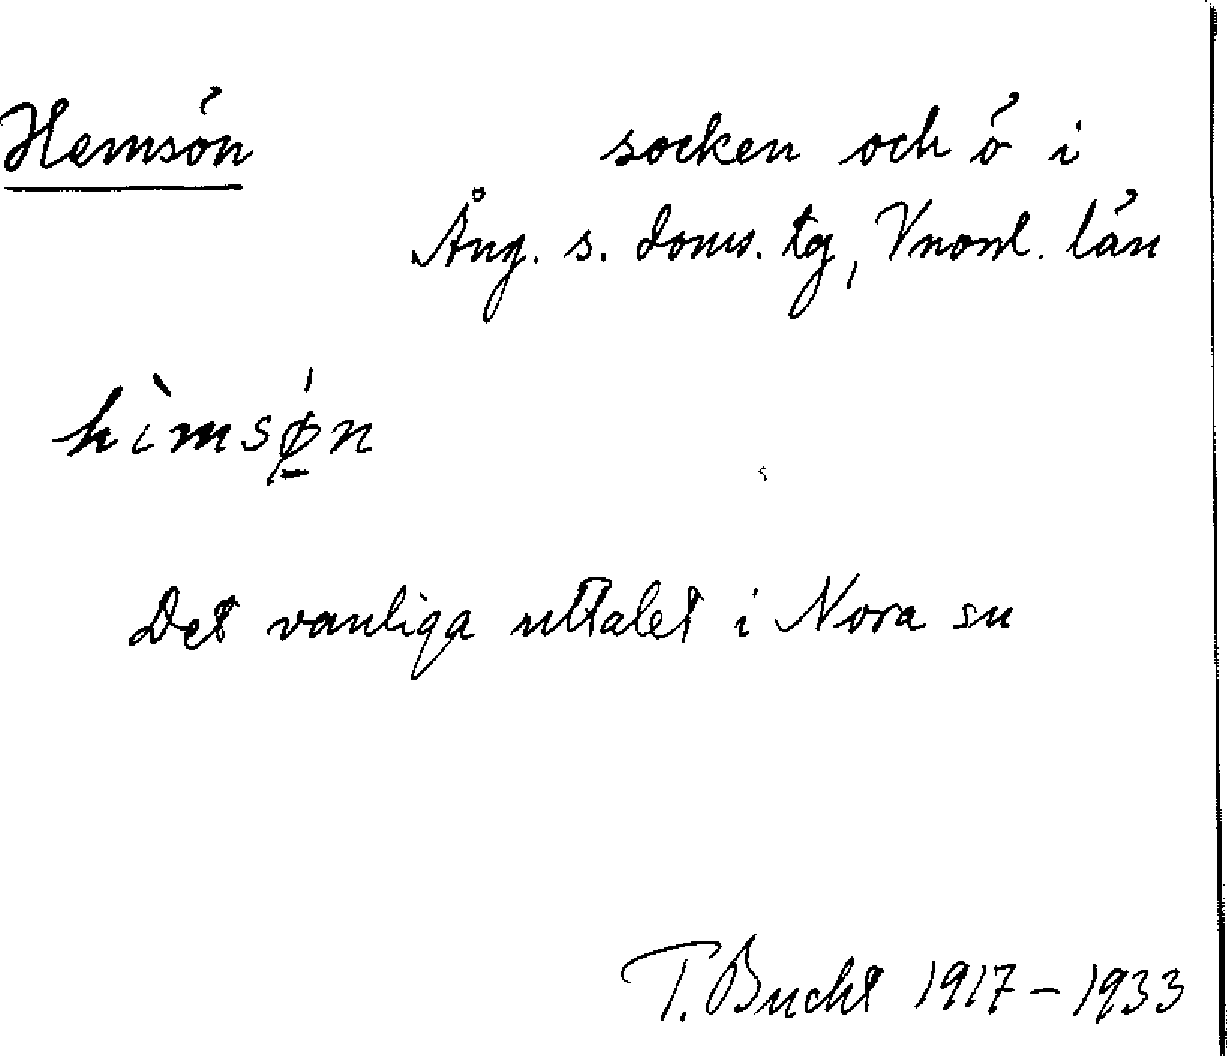 Hemsön socken och ö i
Ång. s. doms. tg, Vnorrl. län
hìmsǿ̱n
Det vanliga uttalet i Nora sn
T. Bucht 1917-1933